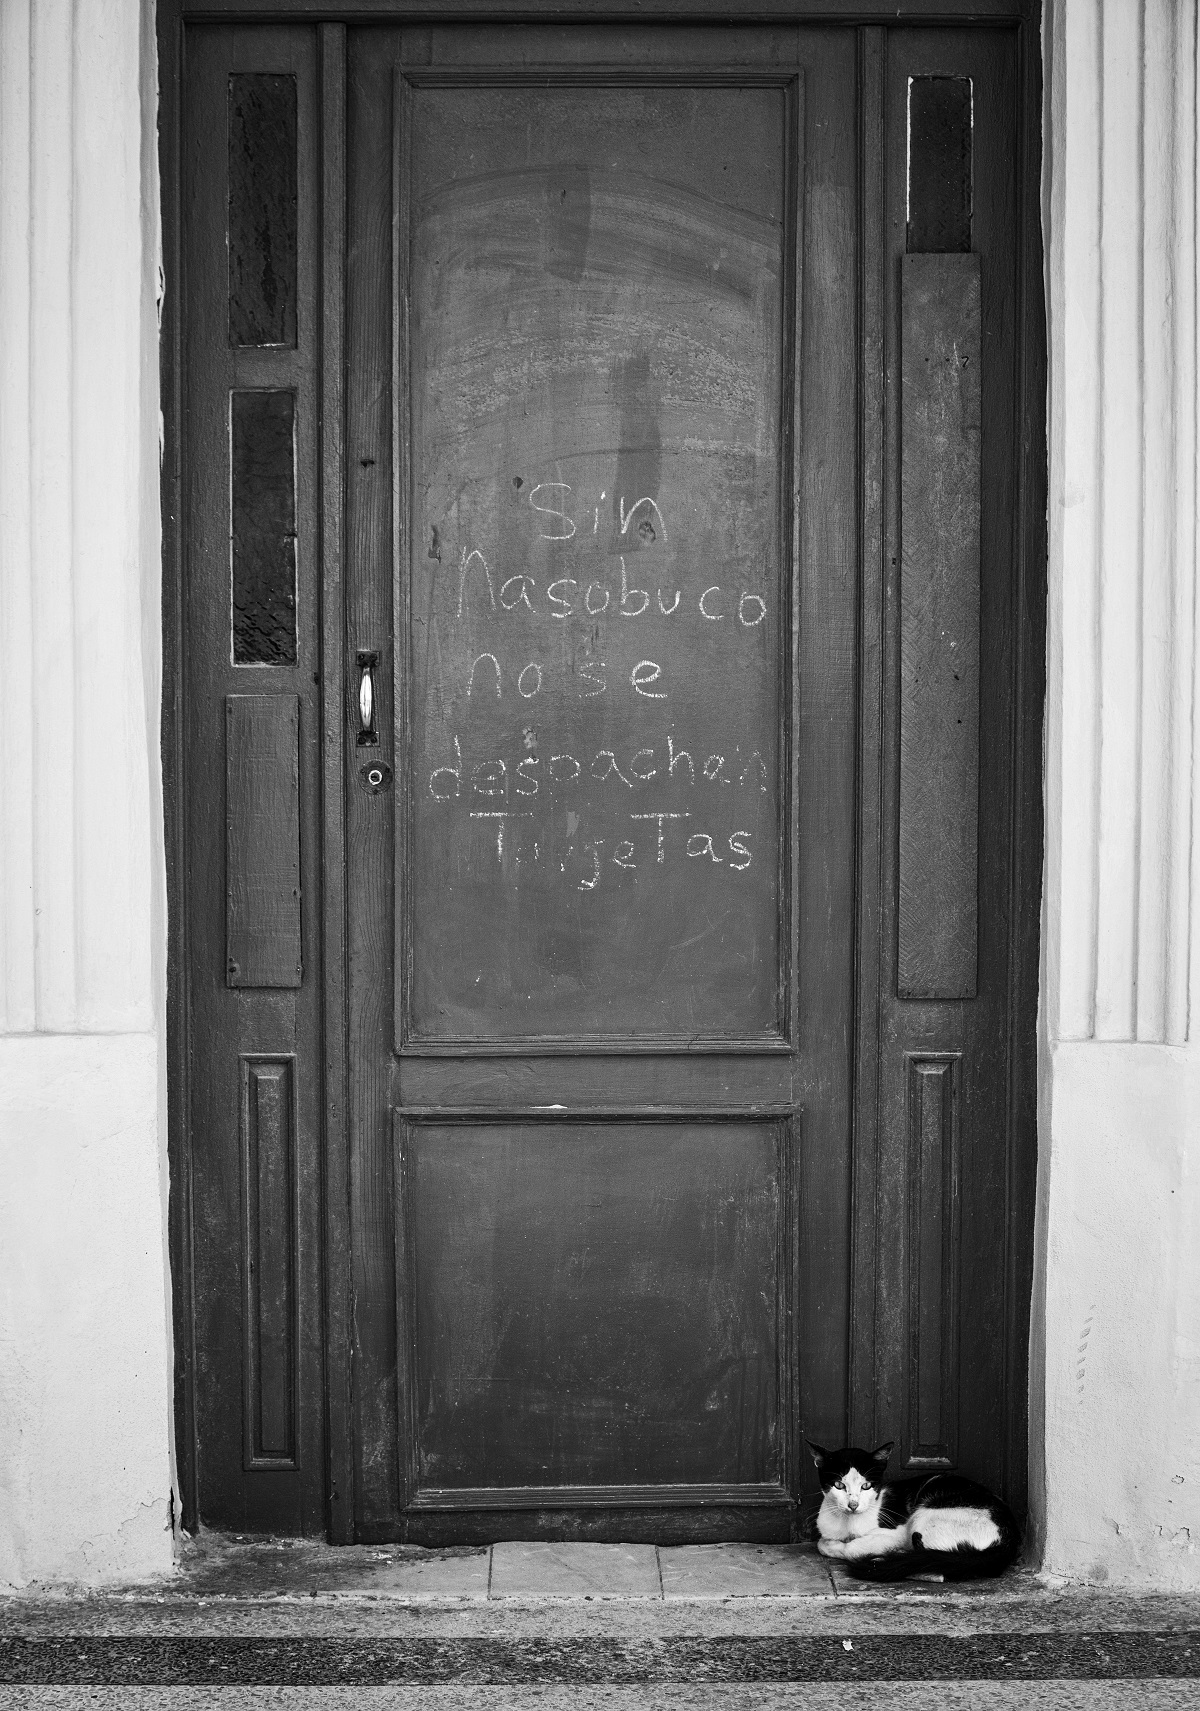 Sin
nasobuco
no se
despachan
TarjeTas